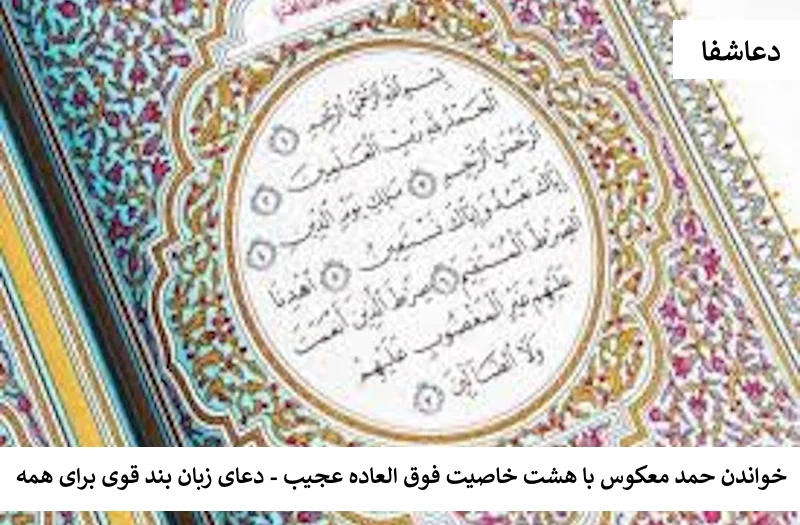 دعاشفا
بِسْمِ اللَّهِ الرَّحْمَٰنِ الرَّحِيمِ
الْحَمْدُ لِلَّهِ رَبِّ الْعَٰلَمِينَ
الرَّحْمَٰنِ الرَّحِيمِ مَٰلِكِ يَوْمِ الدِّينِ
إِيَّاكَ نَعْبُدُ وَإِيَّاكَ نَسْتَعِينُ اهْدِنَا
الصِّرَٰطَ الْمُسْتَقِيمَ صِرَٰطَ الَّذِينَ أَنْعَمْتَ
عَلَيْهِمْ غَيْرِ الْمَغْضُوبِ عَلَيْهِمْ
وَلَا الضَّالِّينَ
خواندن حمد معکوس با هشت خاصیت فوق العاده عجیب - دعای زبان بند قوی برای همه